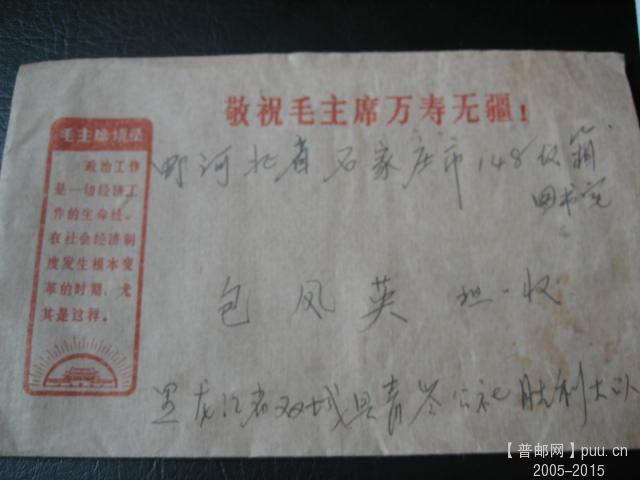 敬祝毛主席万寿无疆！
毛主席语录
政治工作
是一切经济工
作的生命线。
在社会经济制
度发生根本变
革的时期，尤
其是这样。
河北省石家庄市148信箱
图书室
包凤英 收
黑龙江省双城县青岭公社胜利大队
【普邮网】puu.cn
2005-2015